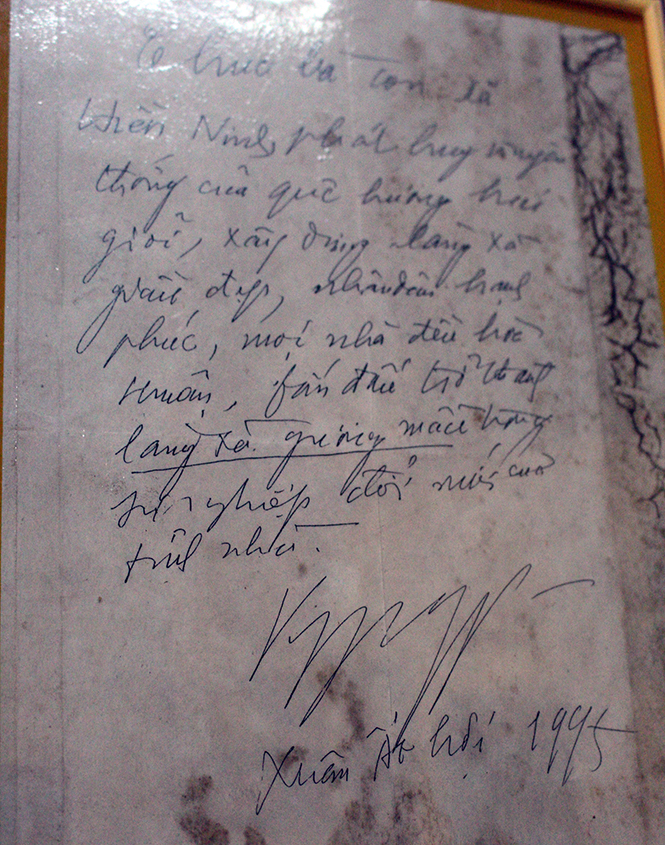 chúc bà con xã
Hiền Ninh, phát huy truyền
thống của quê hương hai
giỏi, xây dựng làng xã
giàu đẹp, nhân dân hạnh
phúc, mọi nhà đều hòa
thuận, phấn đấu trở thành
làng xã gương mẫu trong
sự nghiệp đổi mới của
tỉnh nhà.
Xuân Ất Hợi 1995